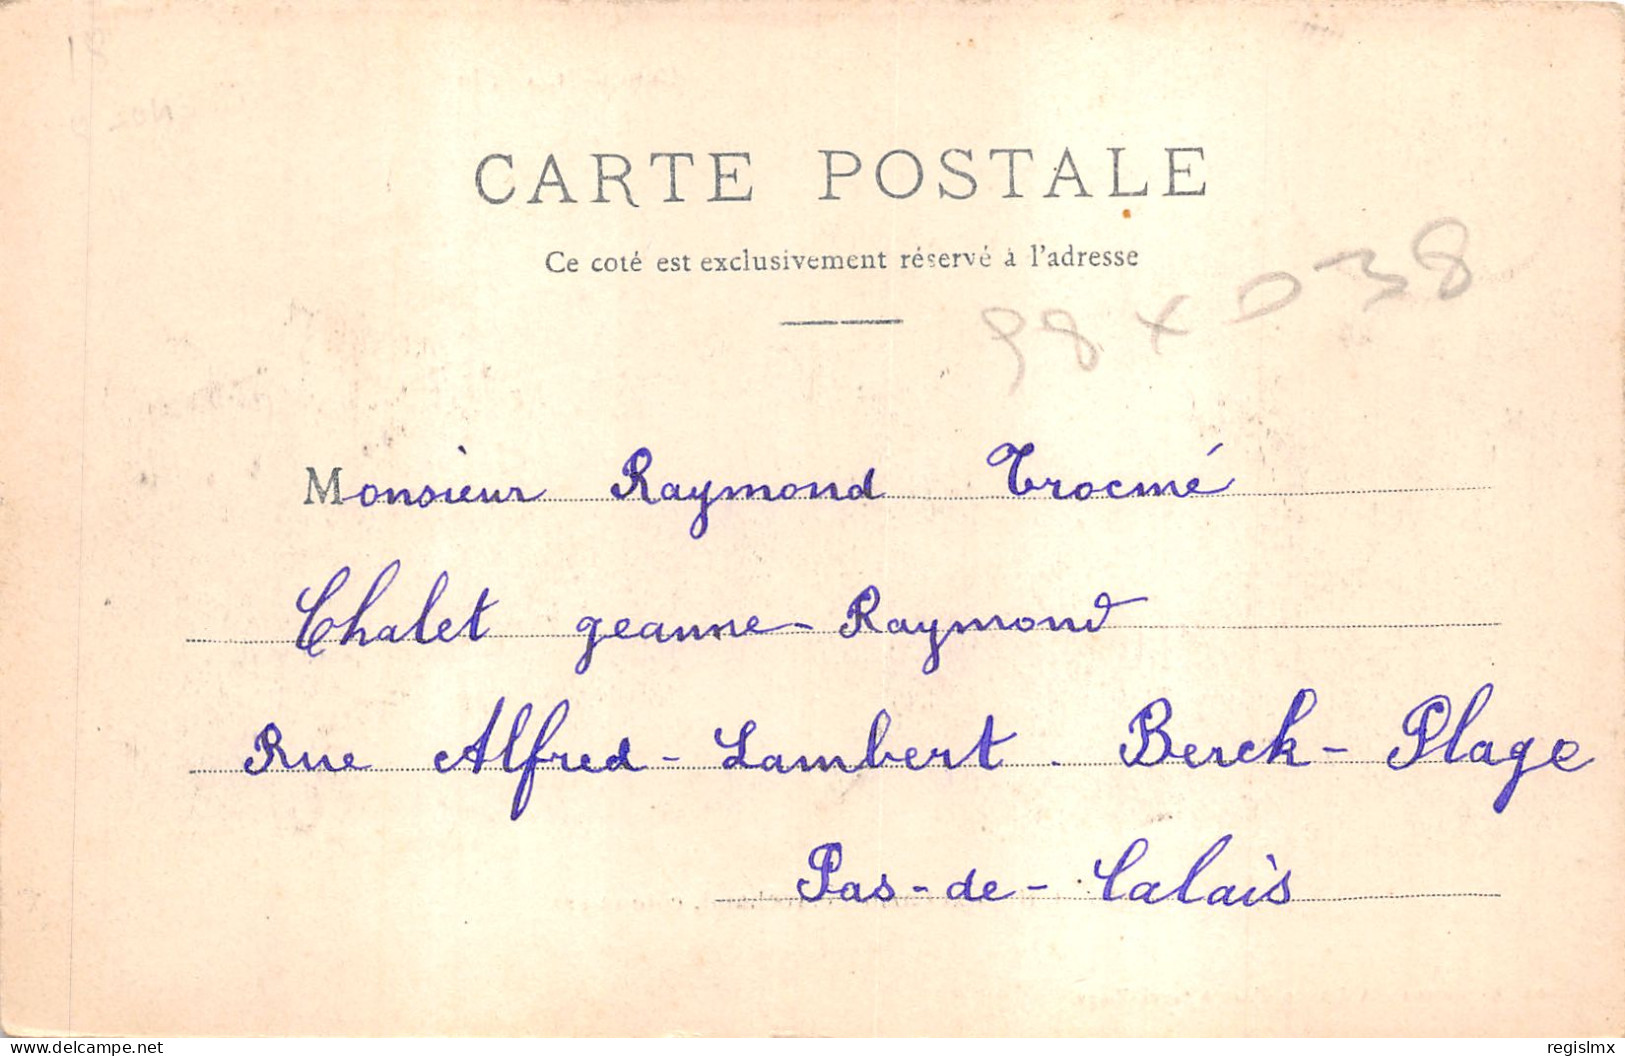 CARTE POSTALE
Ce coté est exclusivement réservé à l'adresse
98 x 038
Monsieur Raymond Trocmé
Chalet Jeanne-Raymond
Rue Alfred-Lambert. Berck-Plage
Pas-de-Calais
www.delcampe.net
regislmx